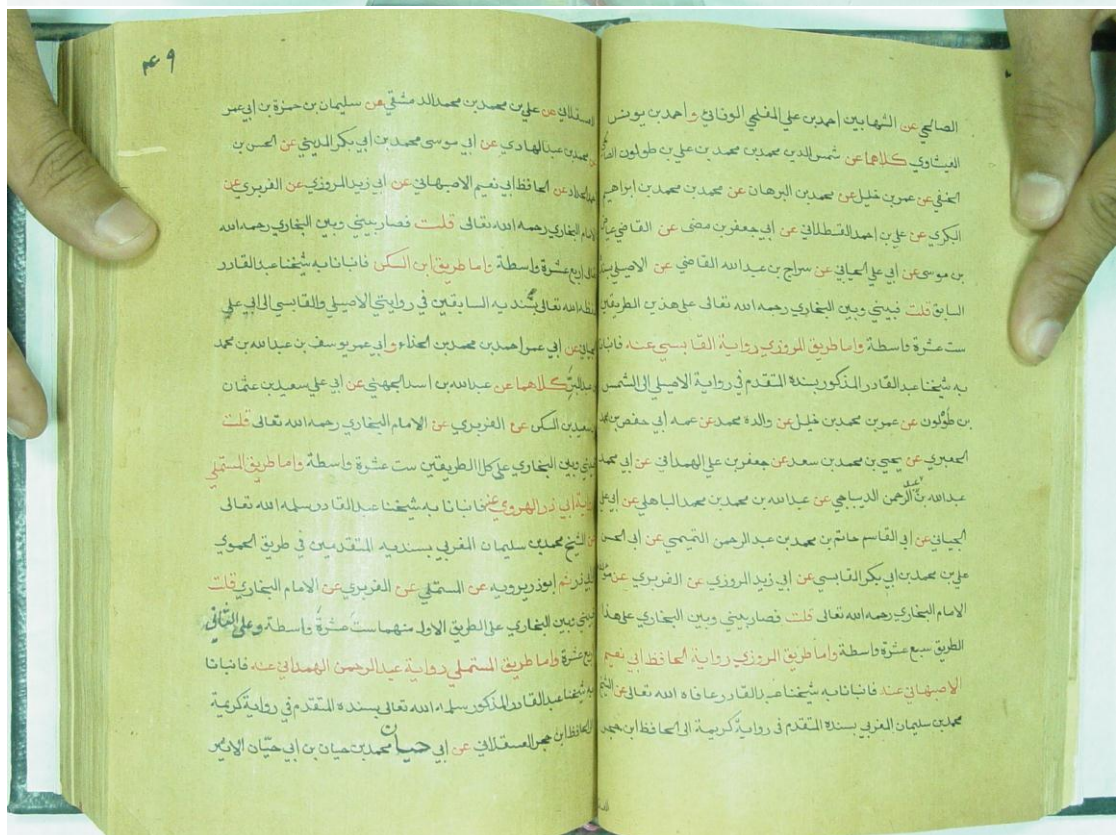 الصالحي عن الشهابين احمد بن علي المفلحي الوفائي واحمد بن يونس
العيثاوي كلاهما عن شمس الدين محمد بن محمد بن علي بن طولون
الحنفي عن عمر بن خليل عن محمد بن البرهان عن محمد بن محمد بن ابراهيم
البكري عن علي بن احمد القسطلاني عن ابي جعفر بن مضى عن القاضي عياض
بن موسى عن ابي علي الجياني عن سراج بن عبد الله القاضي عن الاصيلي بسنده
السابق قلت فبيني وبين البخاري رحمه الله تعالى على هذين الطريقين
ست عشرة واسطة واما طريق المروزي رواية القابسي عنه فانبانا
به شيخنا عبد القادر المذكور بسنده المتقدم في رواية الاصيلي الى الشمس
بن طولون عن عمر بن محمد بن خليل عن والده محمد عن عمه ابي حفص بن
الجعبري عن يحيى بن محمد بن سعد عن جعفر بن علي الهمداني عن ابي محمد
عبد الله بن عبد الرحمن الديباجي عن عبد الله بن محمد بن محمد الباهلي عن ابي علي
الجياني عن ابي القاسم حاتم بن محمد بن عبد الرحمن التميمي عن ابي الحسن
علي بن محمد بن ابي بكر القابسي عن ابي زيد المروزي عن الفربري عن
الامام البخاري رحمه الله تعالى قلت فصار بيني وبين البخاري على هذا
الطريق سبع عشرة واسطة واما طريق المروزي رواية الحافظ ابي نعيم
الاصبهاني عنه فانبانا به شيخنا عبد القادر عافاه الله تعالى عن الشيخ
محمد بن سليمان المغربي بسنده المتقدم في رواية كريمة الى الحافظ ابن حجر
٤٩
العسقلاني عن علي بن محمد بن محمد الدمشقي عن سليمان بن حمزة بن ابي عمر
عن محمد بن عبد الهادي عن ابي موسى محمد بن ابي بكر المديني عن الحسن بن
احمد الحداد عن الحافظ ابي نعيم الاصبهاني عن ابي زيد المروزي عن الفربري عن
الامام البخاري رحمه الله تعالى قلت فصار بيني وبين البخاري رحمه الله
تعالى اربع عشرة واسطة واما طريق ابن السكن فانبانا به شيخنا عبد القادر
حفظه الله تعالى بسنديه السابقين في روايتي الاصيلي والقابسي الى ابي علي
الجياني عن ابي عمر احمد بن محمد بن الحذاء وابي عمر يوسف بن عبد الله بن محمد
بن عبد البر كلاهما عن عبد الله بن اسد الجهني عن ابي علي سعيد بن عثمان
بن سعيد بن السكن عن الفربري عن الامام البخاري رحمه الله تعالى قلت
فبيني وبين البخاري على كلا الطريقين ست عشرة واسطة واما طريق المستملي
رواية ابي ذر الهروي عنه فانبانا به شيخنا عبد القادر سلمه الله تعالى
عن الشيخ محمد بن سليمان المغربي بسنديه المتقدمين في طريق الحموي
الى ابي ذر ثم ابو ذر يرويه عن المستملي عن الفربري عن الامام البخاري قلت
فبيني وبين البخاري على الطريق الاول منهما ست عشرة واسطة وعلى الثاني
اربع عشرة واما طريق المستملي رواية عبد الرحمن الهمداني عنه فانبانا
به شيخنا عبد القادر المذكور سلمه الله تعالى بسنده المتقدم في رواية كريمة
الى الحافظ ابن حجر العسقلاني عن ابي حيان محمد بن حيان بن ابي حيان الاثير